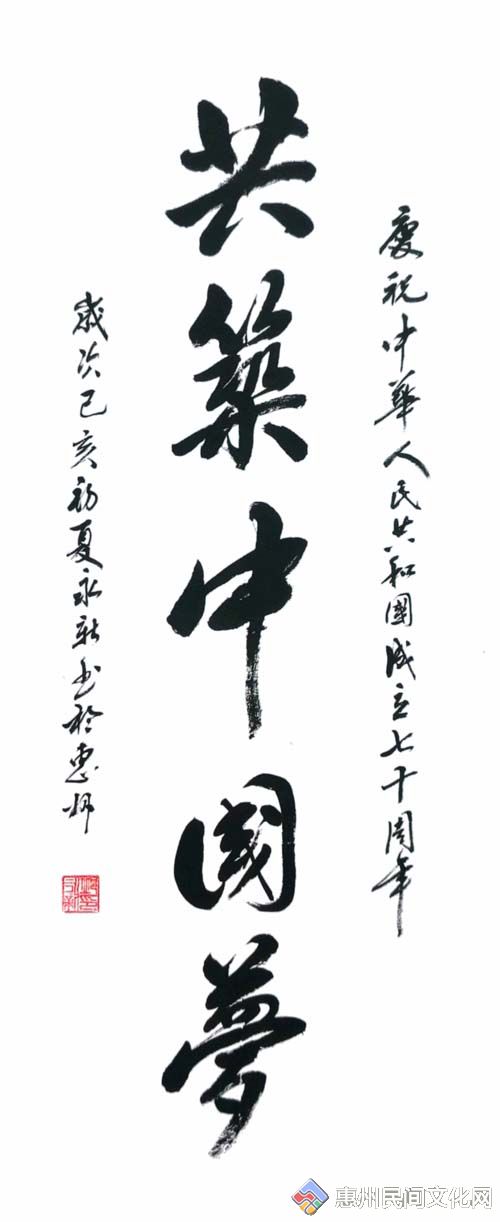 慶祝中華人民共和國成立七十周年
共築中國夢
歲次己亥初夏永新书於惠州
惠州民间文化网